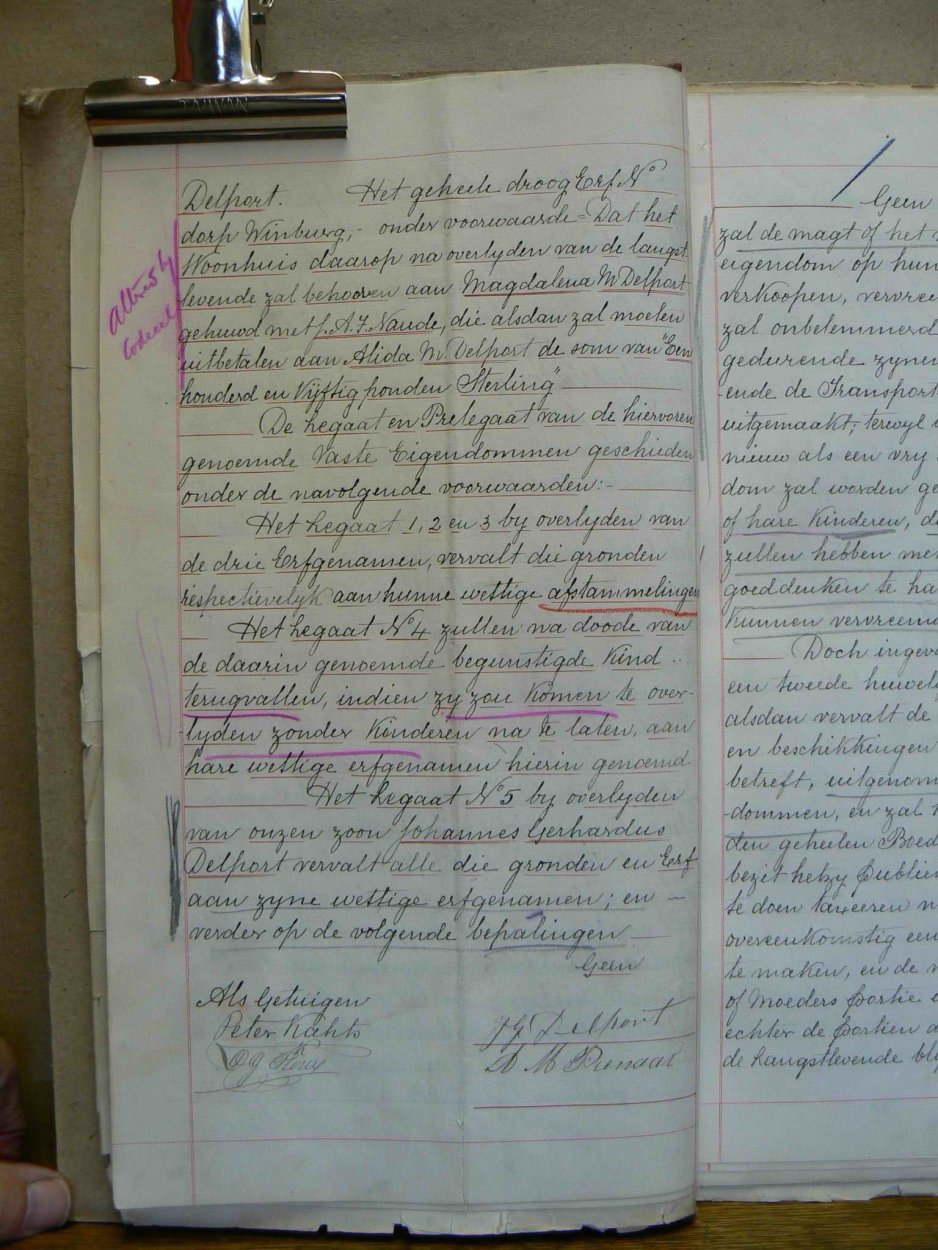 TAIWAN
Delport. Het geheele droog Erf No
dorp Winburg,- onder voorwaarde= Dat het
Woonhuis daarop na overlyden van de langst
levende zal behooren aan Magdalena M Delport
gehuwd met J. A. J. Naude, die alsdan zal moeten
uitbetalen aan Alida M. Delport de som van "Een
honderd en Vijftig ponden Sterling"
De Legaat en Prelegaat van de hiervoren
genoemde Vaste Eigendommen geschieden
onder de navolgende voorwaarden:-
Het Legaat 1, 2 en 3 by overlyden van
de drie Erfgenamen, vervalt die gronden
respectievelyk aan hunne wettige afstammelingen
Het Legaat No 4 zullen na doode van
de daarin genoemde begunstigde Kind
terugvallen, indien zy zou komen te over-
lyden zonder Kinderen na te laten, aan
hare wettige erfgenamen hierin genoemd
Het Legaat No 5 by overlyden
van onzen zoon Johannes Gerhardus
Delport vervalt alle die gronden en Erf
aan zyne wettige erfgenamen; en
verder op de volgende bepalingen
Geen
Als Getuigen
Peter Kahts
JG Delport
altered by
Codicil
Geen
zal de magt of het
eigendom op hun
verkoopen, vervree
zal onbelemmerd
gedurende zyne
ende de Transport
uitgemaakt, terwyl
nieuw als een vry
dom zal worden ge
of hare Kinderen, d
zullen hebben me
goeddunken te ha
Kunnen vervreem
Doch ingeva
een tweede huwel
alsdan vervalt de
en beschikkingen
betreft, uitgenom
dommen, en zal
den geheelen Boed
bezit hetzy publie
te doen taxeeren
overeenkomstig een
te maken, en de
of Moeders portie
echter de portien
de Langstlevende bly